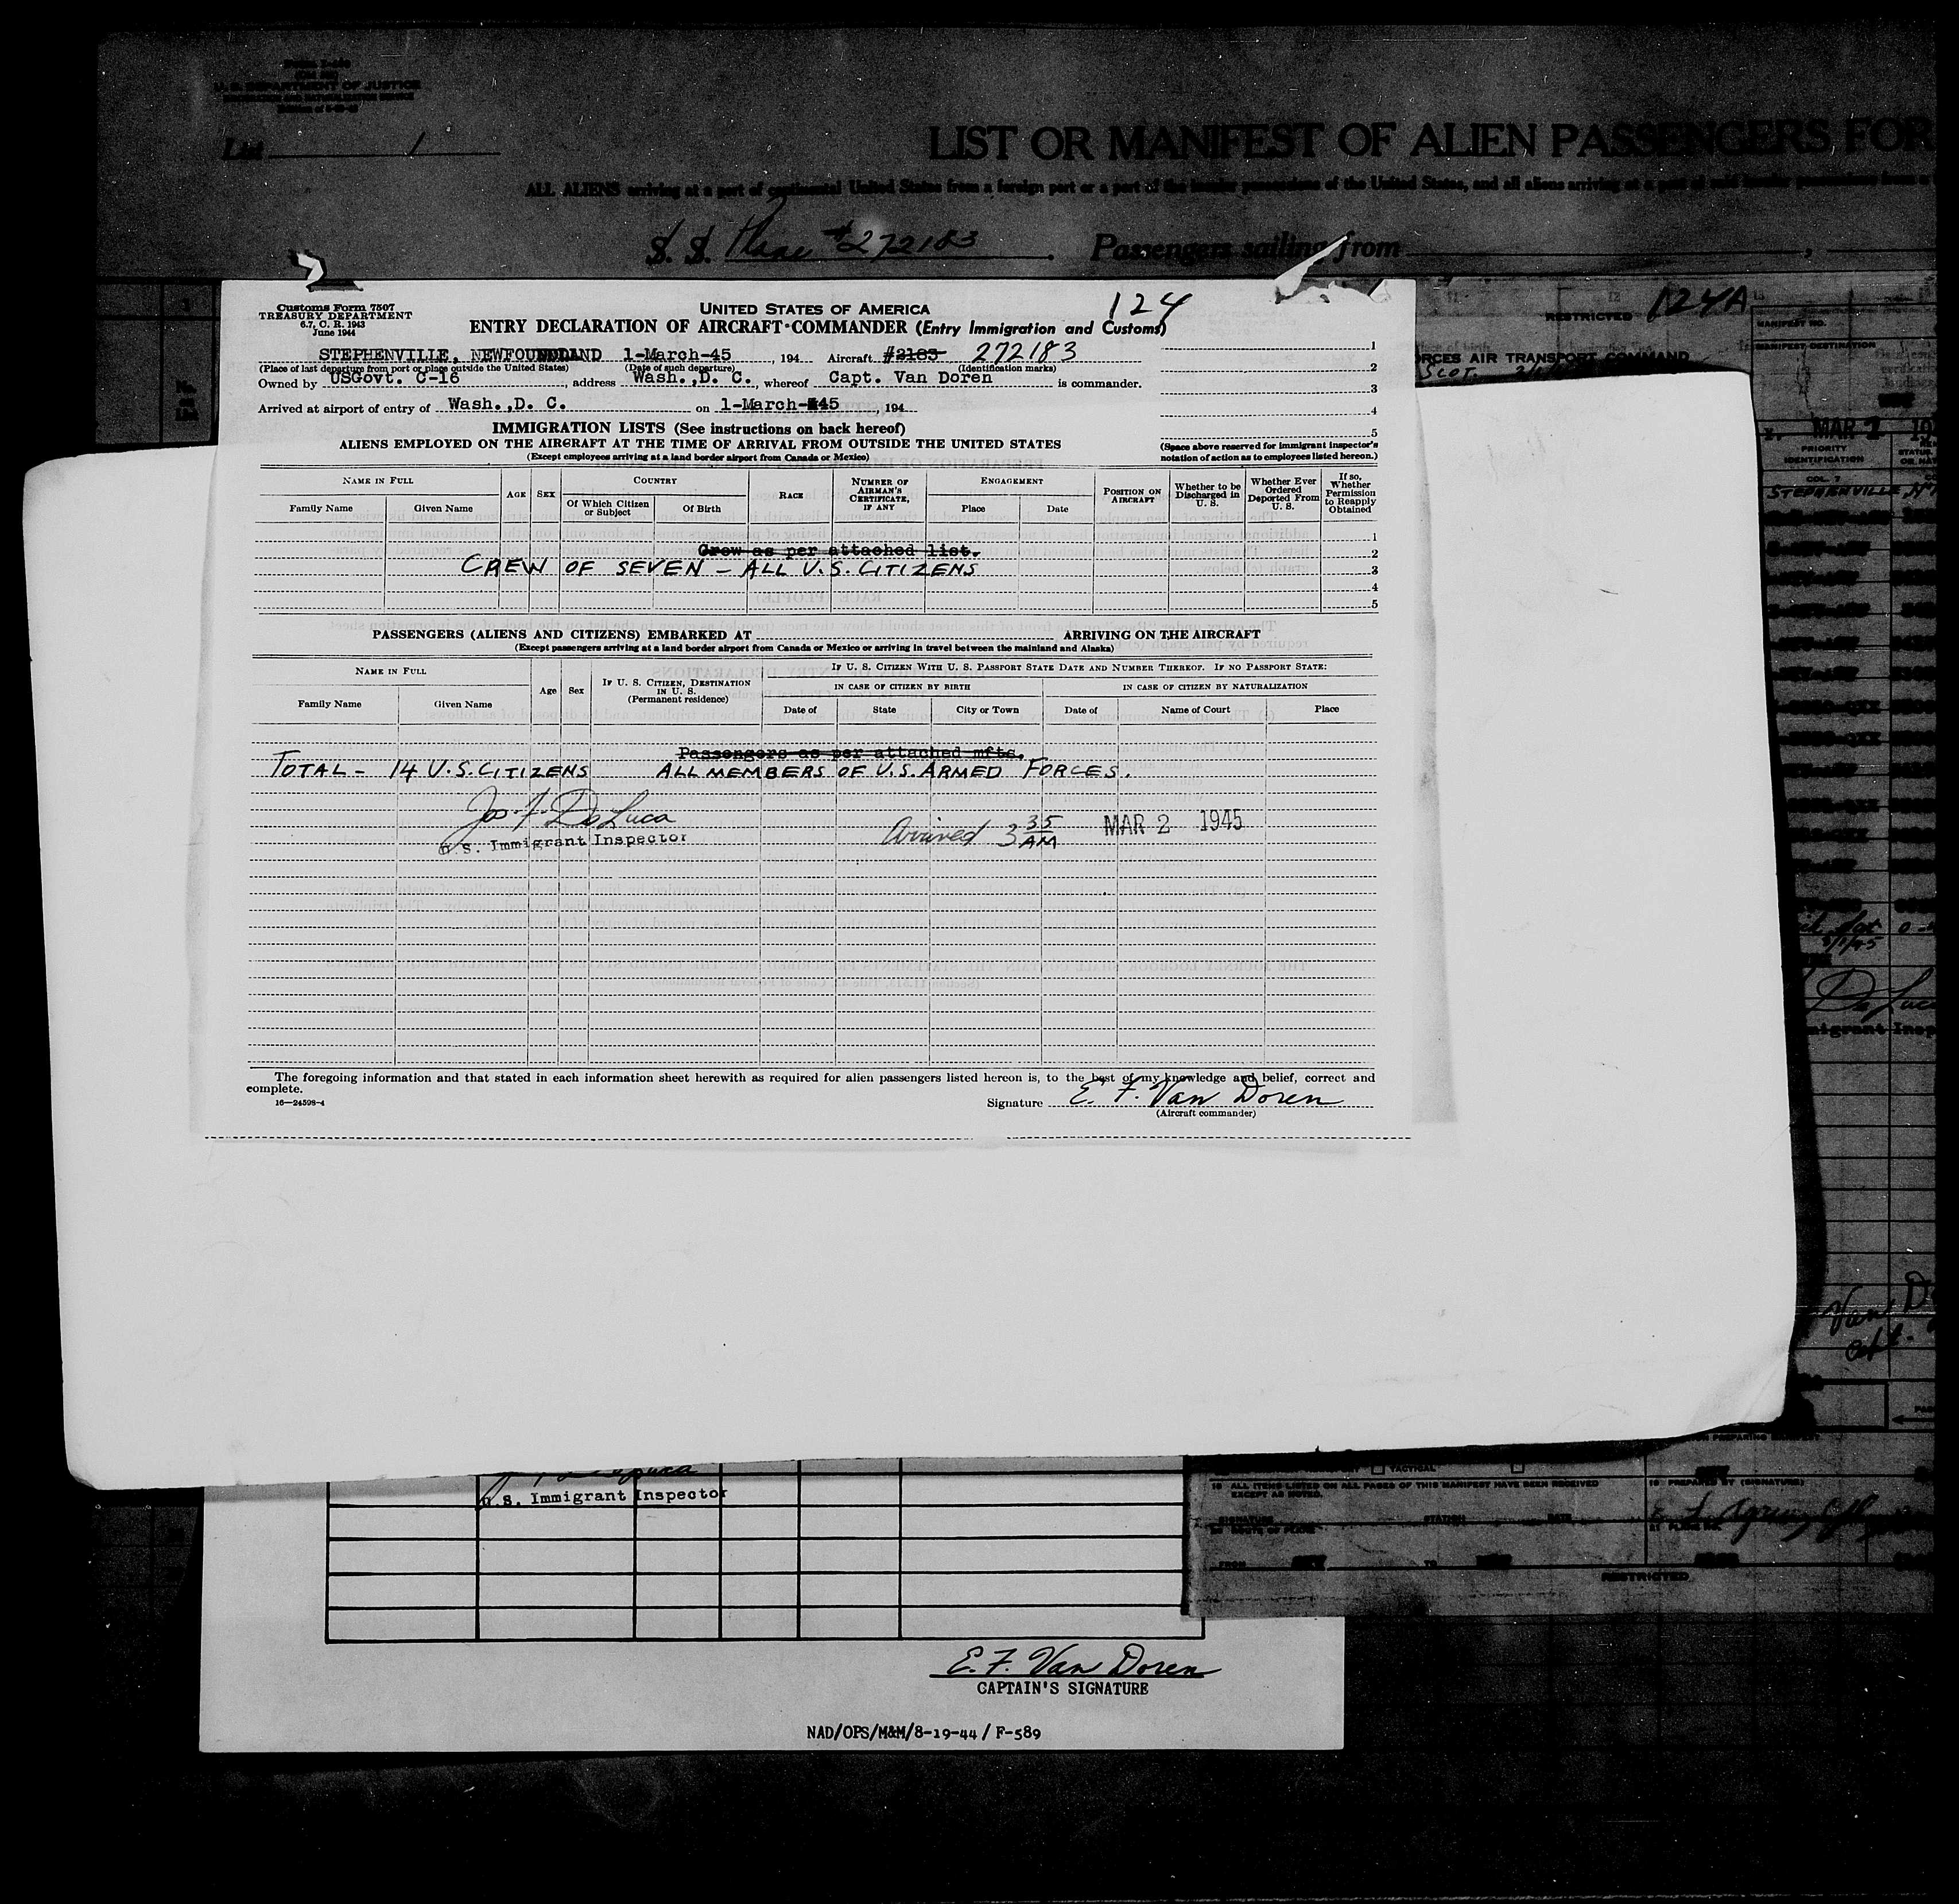 U. S. DEPARTMENT OF JUSTICE
List 1
LIST OR MANIFEST OF ALIEN PASSENGERS FOR
ALL ALIENS arriving at a port of continental United States from a foreign port or a port of the insular possessions of the United States, and all aliens arriving at a port of said insular possessions from a
S. S. Plane #272183 . Passengers sailing from ,
Customs Form 7507
TREASURY DEPARTMENT
6.7, C. R. 1943
June 1944
UNITED STATES OF AMERICA
124
ENTRY DECLARATION OF AIRCRAFT COMMANDER (Entry Immigration and Customs)
STEPHENVILLE, NEWFOUNDLAND 1-March-45 , 194 Aircraft #2183 272183
(Place of last departure from port or place outside the United States) (Date of such departure) (Identification marks)
Owned by USGovt. C-16 , address Wash.,D. C. , whereof Capt. Van Doren is commander.
Arrived at airport of entry of Wash.,D. C. on 1-March-45 , 194
1
2
3
4
5
(Space above reserved for immigrant inspector's notation of action as to employees listed hereon.)
IMMIGRATION LISTS (See instructions on back hereof)
ALIENS EMPLOYED ON THE AIRCRAFT AT THE TIME OF ARRIVAL FROM OUTSIDE THE UNITED STATES
(Except employees arriving at a land border airport from Canada or Mexico)
NAME IN FULL
Family Name
Given Name
AGE
SEX
COUNTRY
Of Which Citizen or Subject
Of Birth
RACE
NUMBER OF AIRMAN'S CERTIFICATE, IF ANY
ENGAGEMENT
Place
Date
POSITION ON AIRCRAFT
Whether to be Discharged in U. S.
Whether Ever Ordered Deported From U. S.
If so, Whether Permission to Reapply Obtained
1
Crew as per attached list. 2
CREW OF SEVEN – ALL U.S. CITIZENS 3
4
5
PASSENGERS (ALIENS AND CITIZENS) EMBARKED AT ARRIVING ON THE AIRCRAFT
(Except passengers arriving at a land border airport from Canada or Mexico or arriving in travel between the mainland and Alaska)
NAME IN FULL
Family Name
Given Name
Age
Sex
IF U. S. CITIZEN, DESTINATION IN U. S.
(Permanent residence)
IF U. S. CITIZEN WITH U. S. PASSPORT STATE DATE AND NUMBER THEREOF. IF NO PASSPORT STATE:
IN CASE OF CITIZEN BY BIRTH
Date of
State
City or Town
IN CASE OF CITIZEN BY NATURALIZATION
Date of
Name of Court
Place
Passengers as per attached mfts.
TOTAL – 14 U.S. CITIZENS ALL MEMBERS OF U.S. ARMED FORCES.
Jos. F. DeLuca
U.S. Immigrant Inspector
Arrived 3 35 AM MAR 2 1945
The foregoing information and that stated in each information sheet herewith as required for alien passengers listed hereon is, to the best of my knowledge and belief, correct and
complete.
16—24598-4
Signature E. F. Van Doren
(Aircraft commander)
RESTRICTED 124A
MANIFEST NO.
MANIFEST DESTINATION
FORCES AIR TRANSPORT COMMAND
MAR
PRIORITY
IDENTIFICATION
COL. 7
STEPHENVILLE,
U.S. Immigrant Inspector
TACTICAL
ALL ITEMS LISTED ON ALL PAGES OF THIS MANIFEST HAVE BEEN RECEIVED
EXCEPT AS NOTED.
PREPARED BY (SIGNATURE)
SIGNATURE STATION DATE
FROM TO
RESTRICTED
E. F. Van Doren
CAPTAIN'S SIGNATURE
NAD/OPS/M&M/8-19-44 / F-589